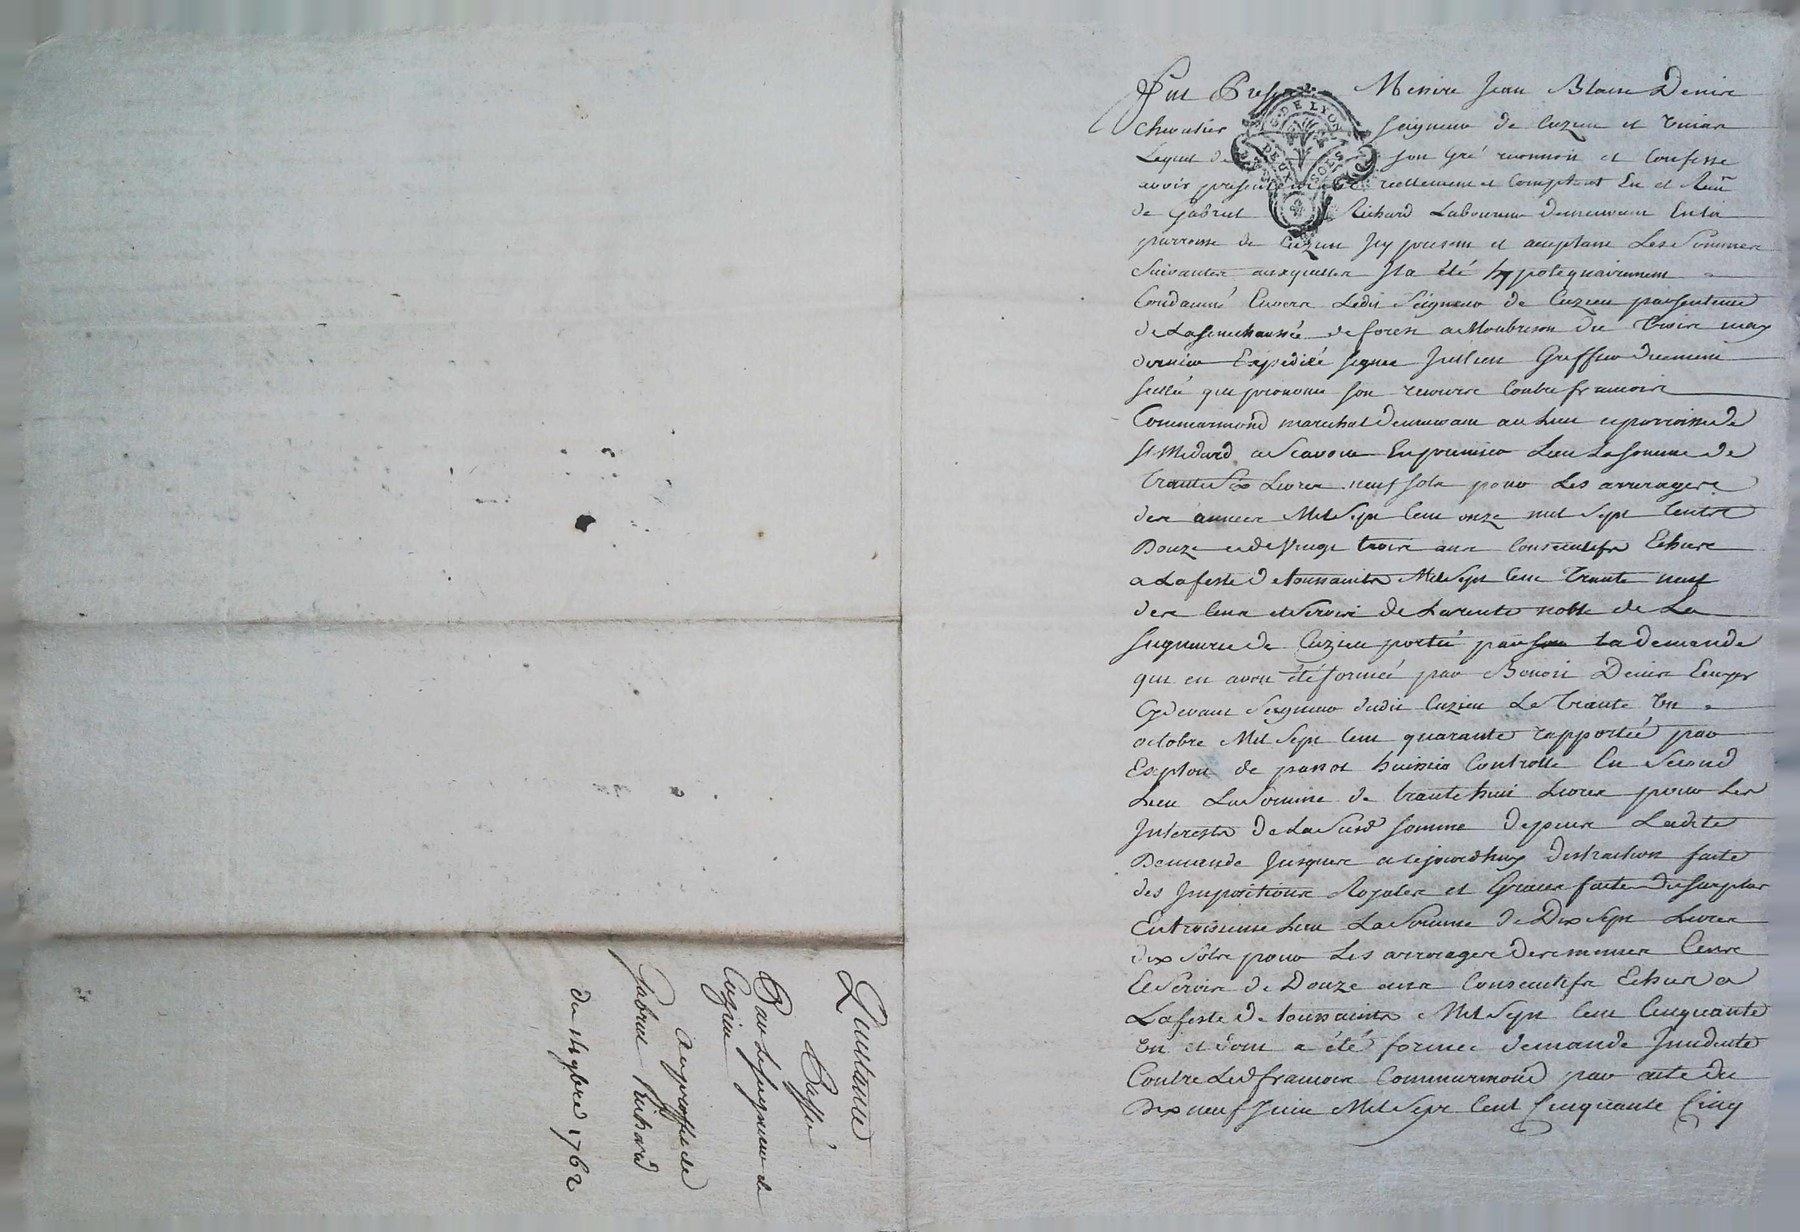 Quittance
Passée
Par Le seigneur de
Cuzieu
au proffit de
Gabriel Richard
du 14 9bre 1762
Fut Present Messire Jean Blaise Denis
chevalier seigneur de Cuzieu et Unias
Lequel de son Gré reconnoit et Confesse
avoir presentement reellement et Comptant Eu et Receu
de Gabriel Richard Laboureur demeurant En la
parroisse de Cuzieu Icy present et acceptant Les Sommes
Suivantes auxquelles Il a été hypotequairement
Condamné Envers Ledit Seigneur de Cuzieu par sentence
de La senechaussée de forest a Monbrison du trois may
dernier Expediée signée Jullien Greffier duement
scellé qui prononce son recours Contre francois
Commarmond marechal demeurant au Lieu et parroisse de
St Medard a Scavoir En premier Lieu La somme de
trante Six Livres neuf sols pour Les arrerages
des années Mil Sept Cent onze mil Sept Cents
Douze et de Vingt trois ans Consecutifs Echus
a La feste de toussaints Mil Sept Cent trante neuf
des Cens et Servis de La rente noble de La
seigneurie de Cuzieu portée par la demande
qui en avoit été formée par Benoit Denis Ecuyer
Cydevant Seigneur dudit Cuzieu Le trante Un
octobre Mil Sept Cent quarante rapportée par
Exploit de huissier Controllé En Second
Lieu La Somme de trante huit Livres pour Les
Interests de La Susd somme depuis Ladite
Demande Jusques a cejourdhuy distraction faite
des Impositions Royales et Grace faite du surplus
En troisieme Lieu La Somme de Dix Sept Livres
dix Sols pour Les arrerages des memes Cens
et Servis de Douze ans Consecutifs Echus a
La feste de toussaints Mil Sept Cent Cinquante
Un et dont a été formée demande Incidente
Contre Led francois Commarmond par acte du
Dix neuf Juin Mil Sept Cent Cinquante Cinq